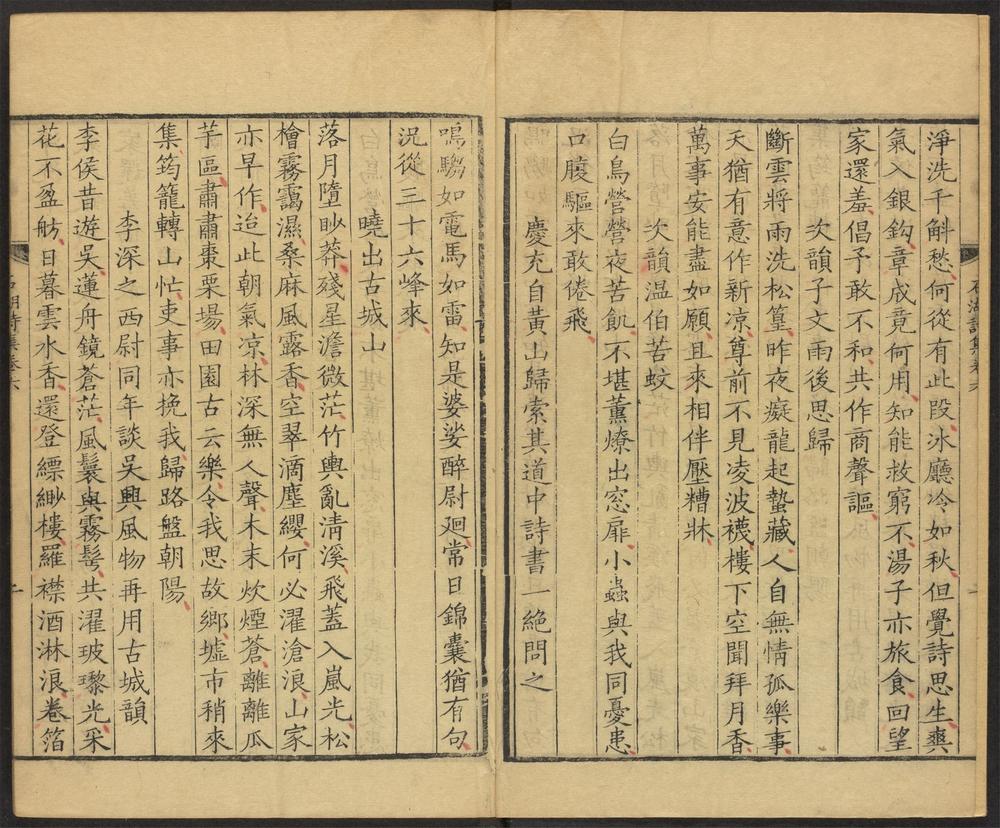 淨洗千斛愁何從有此段冰廳冷如秋但覺詩思生爽
氣入銀鈎章成竟何用知能救窮不湯子亦旅食回望
家還羞倡予敢不和共作商聲謳
次韻子文雨後思歸
斷雲將雨洗松篁昨夜癡龍起蟄藏人自無情孤樂事
天猶有意作新凉尊前不見凌波襪樓下空聞拜月香
萬事安能盡如願且來相伴壓糟牀
次韻温伯苦蚊
白鳥營營夜苦飢不堪薰燎出窓扉小蟲與我同憂患
口腹驅來敢倦飛
慶充自黄山歸索其道中詩書一絶問之
鳴騶如電馬如雷知是婆娑醉尉廻常日錦囊猶有句
況從三十六峰來
曉出古城山
落月墮眇莽殘星澹微茫竹輿亂清溪飛蓋入嵐光松
檜霧靄濕桑麻風露香空翠滴塵纓何必濯滄浪山家
亦早作迨此朝氣凉林深無人聲木末炊煙蒼離離瓜
芋區肅肅棗栗場田園古云樂令我思故鄉墟市稍來
集筠籠轉山忙吏事亦挽我歸路盤朝陽
李深之西尉同年談吳興風物再用古城韻
李侯昔遊吳蓮舟鏡蒼茫風鬟與霧髩共濯玻瓈光采
花不盈舫日暮雲水香還登縹緲樓羅襟酒淋浪卷箔